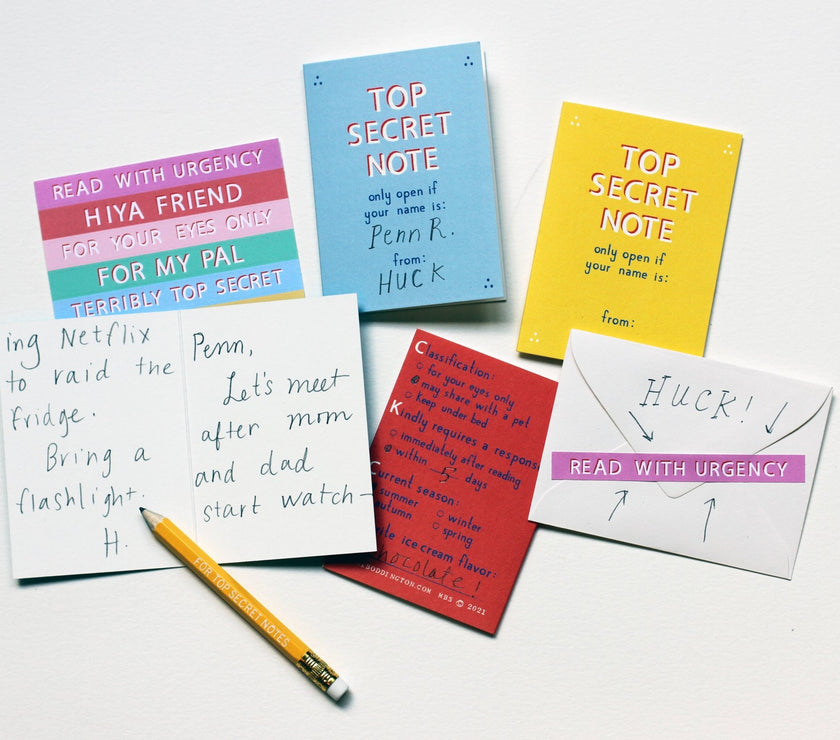 READ WITH URGENCY
HIYA FRIEND
FOR YOUR EYES ONLY
FOR MY PAL
TERRIBLY TOP SECRET
TOP
SECRET
NOTE
only open if
your name is:
Penn R.
from:
HUCK
TOP
SECRET
NOTE
only open if
your name is:
from:
ing Netflix
to raid the
fridge.
Bring a
flashlight.
H.
Penn,
Let's meet
after mom
and dad
start watch-
Classification:
for your eyes only
may share with a pet
keep under bed
Kindly requires a respons
immediately after reading
within 5 days
urrent season:
summer
winter
autumn
spring
rite ice cream flavor:
chocolate!
BODDINGTON.COM MBS 2021
HUCK!
READ WITH URGENCY
FOR TOP SECRET NOTES